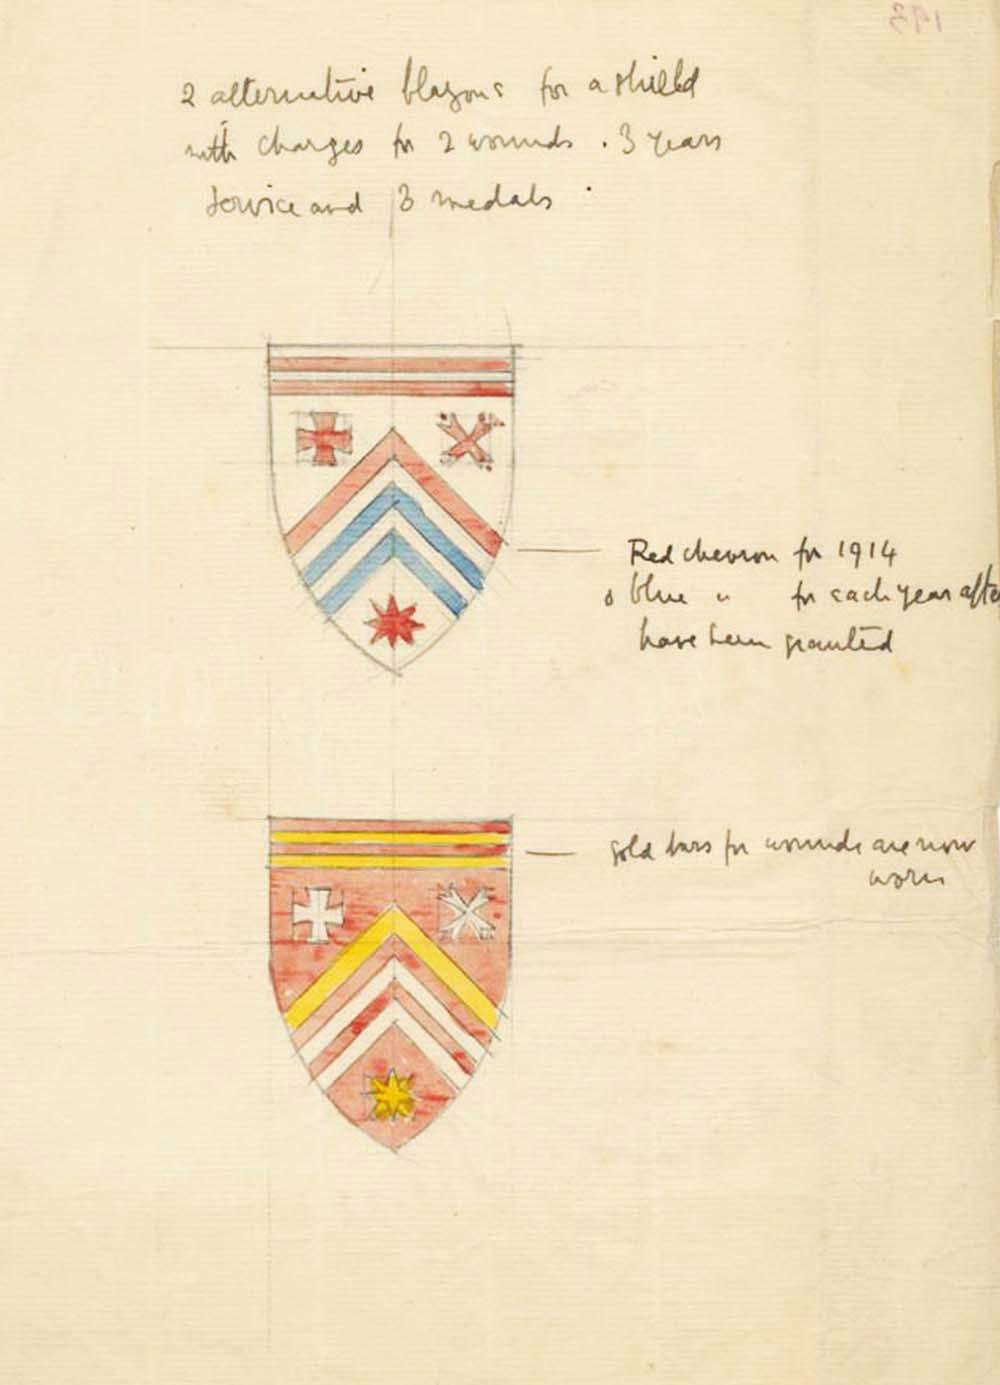 193
2 alternative blazons for a shield
with charges for 2 wounds . 3 years
service and 3 medals
Red chevron for 1914
& blue " for each year afte
have been granted
gold bars for wounds are now
worn